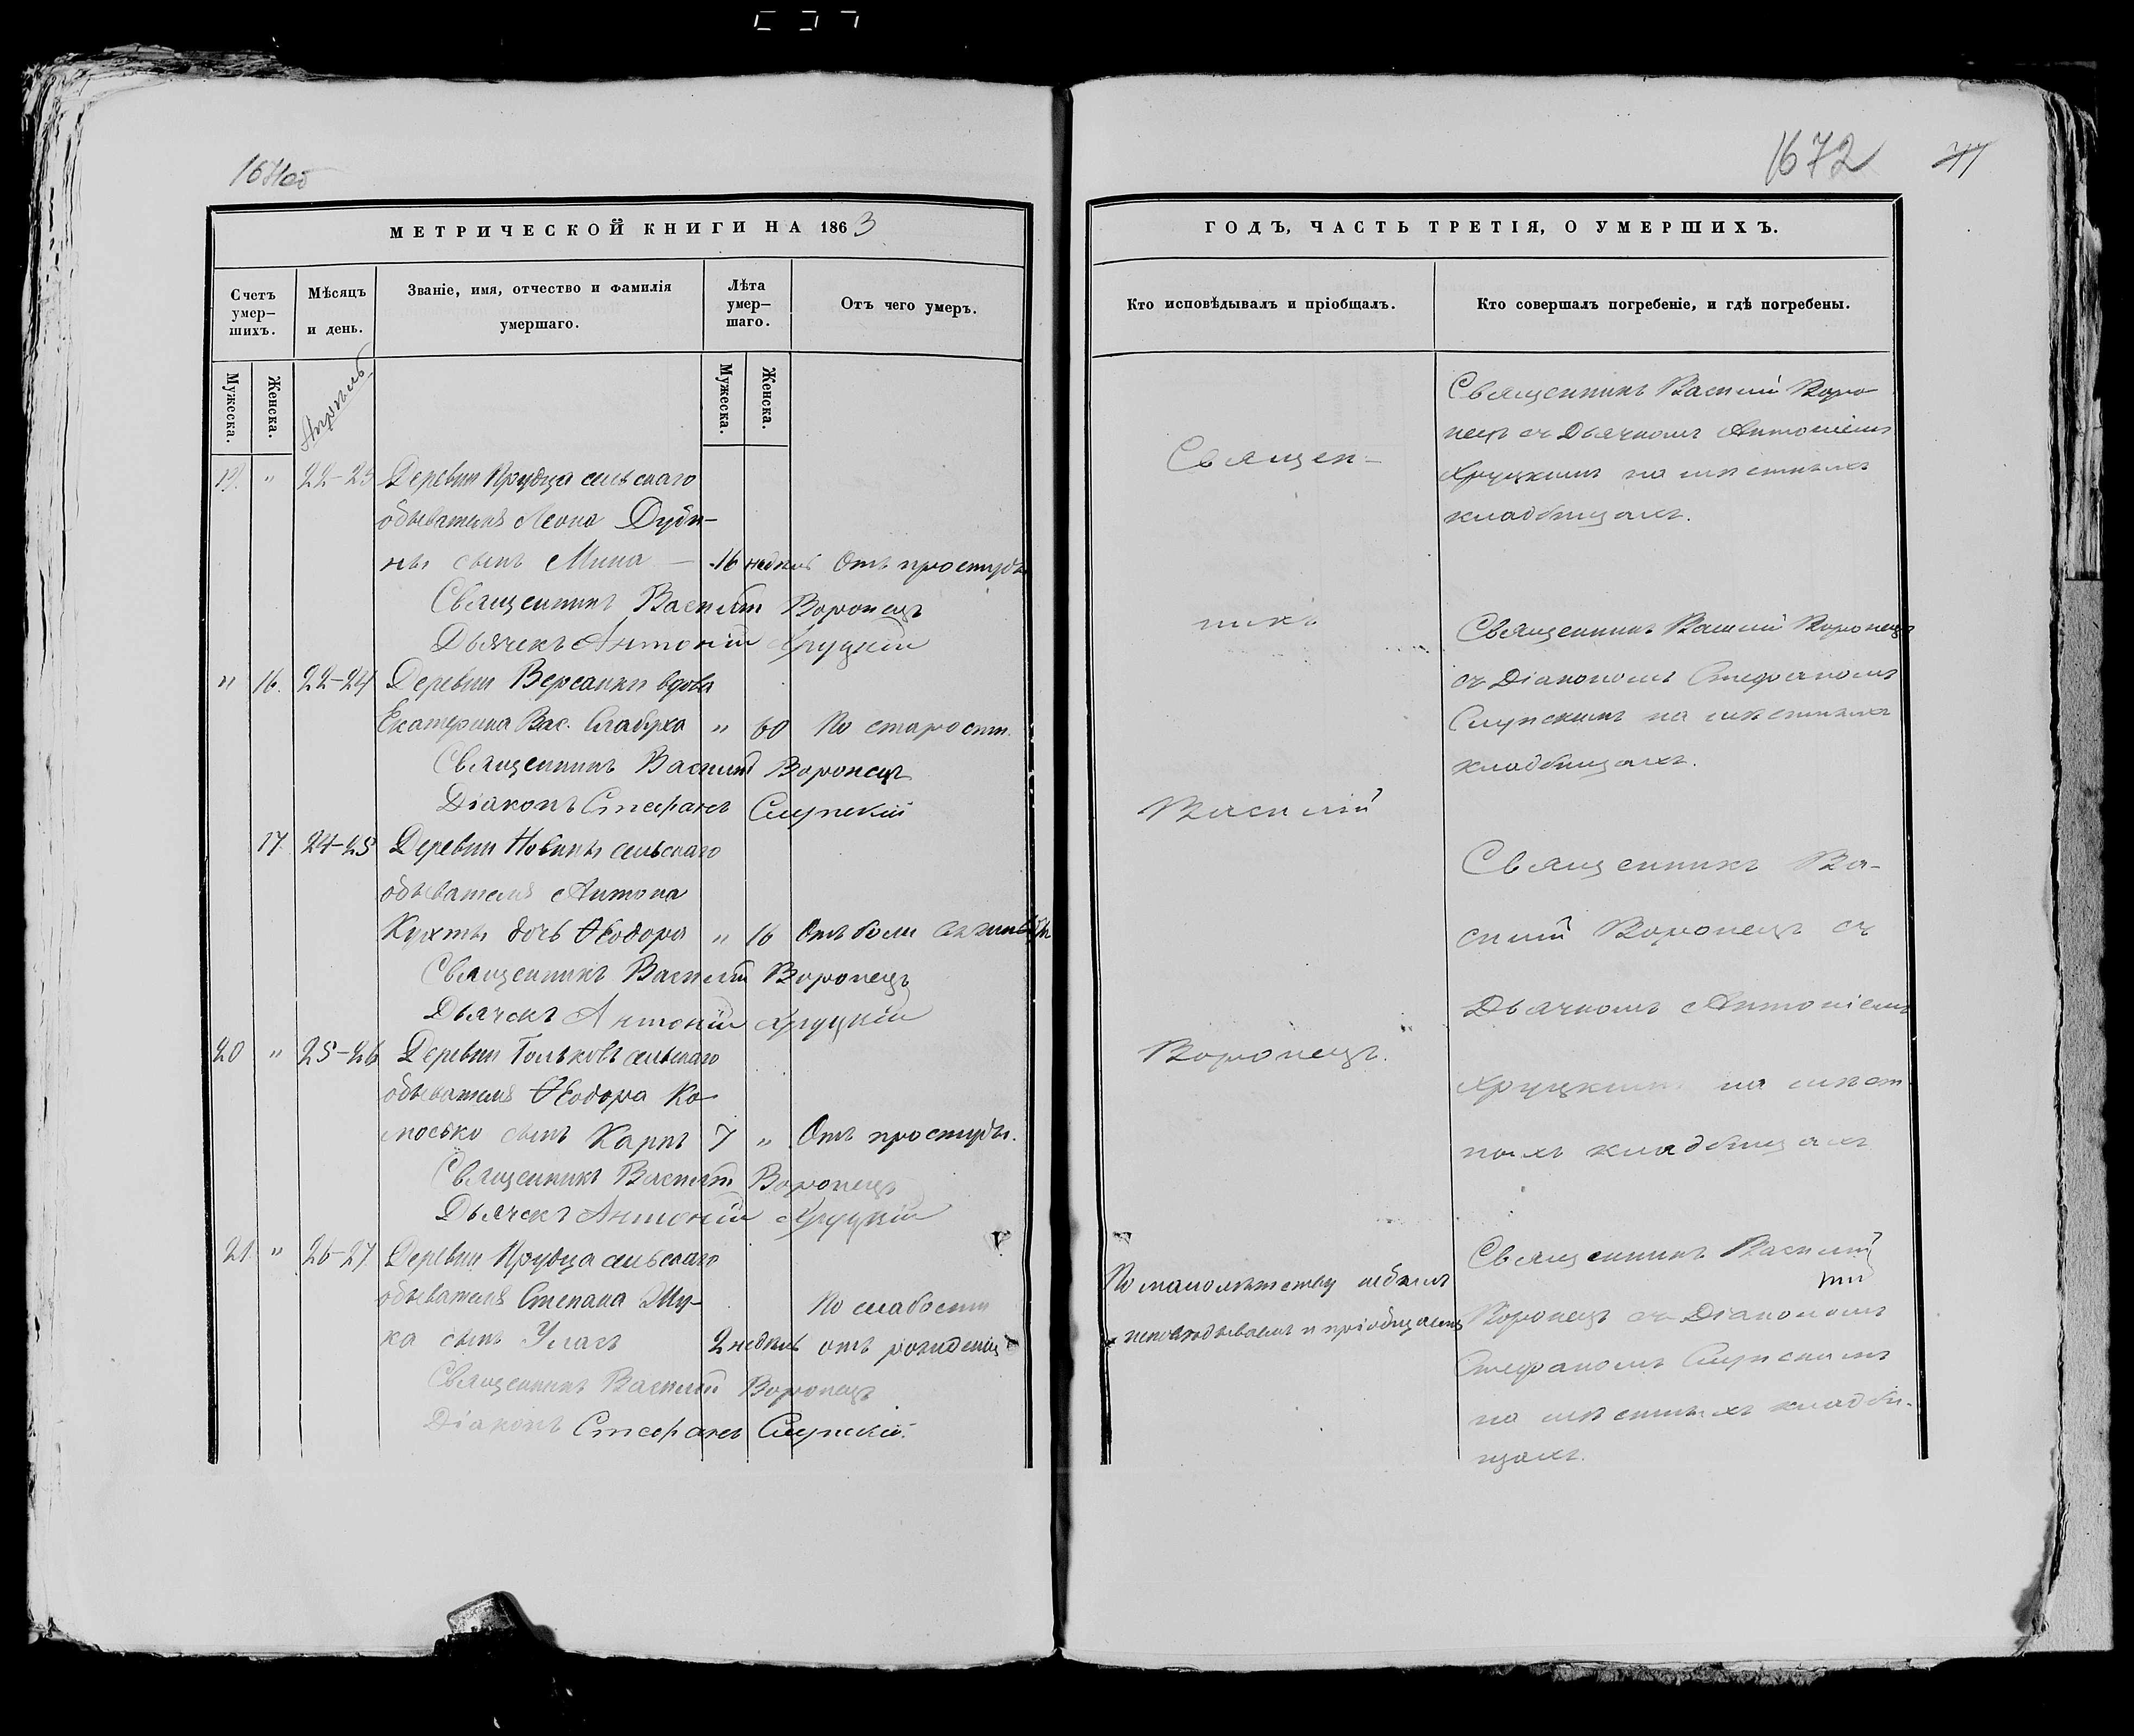 1672
МЕТРИЧЕСКОЙ КНИГИ НА 1863
Счетъ умер-шихъ.
Мѣсяцъ и день.
Званіе, имя, отчество и фамилія умершаго.
Лѣта умер-шаго.
Отъ чего умеръ.
Мужеска.
Женска.
Мужеска.
Женска.
Апрѣль
19. " 22-23 Деревни Прудца сельскаго
обывателя Леона Дуби-
ны сынъ Мина — 16 недѣль Отъ простуды
Священникъ Василій Воронецъ
Дьячекъ Антоній Хруцкій
" 16. 22-24 Деревни Версанки вдова
Екатерина Вас. " 60 По старости.
Священникъ Василій Воронецъ
Діаконъ Стефанъ Слупскій
17 24-25 Деревни Новины сельскаго
обывателя Антона
Кухты дочь Ѳеодора " 16 Отъ боли
Священникъ Василій Воронецъ
Дьячекъ Антоній Хруцкій
20 " 25-26 Деревни сельскаго
обывателя Ѳеодора Ко-
мосько сынъ Карпъ 7 " Отъ простуды.
Священникъ Василій Воронецъ
Дьячекъ Антоній Хруцкій
21 " 26-27 Деревни Прудца сельскаго
обывателя Степана Жу-
ка сынъ 2 недѣль По слабости
отъ рожденія
Священникъ Василій Воронецъ
Діаконъ Стефанъ Слупскій.
ГОДЪ, ЧАСТЬ ТРЕТІЯ, О УМЕРШИХЪ.
Кто исповѣдывалъ и пріобщалъ.
Кто совершалъ погребеніе, и гдѣ погребены.
Священ-
никъ
Василій
Воронецъ.
По малолѣтству небылъ
исповѣдываемъ и пріобщаемъ
Священникъ Василій Воро-
нецъ съ Дьячкомъ Антоніемъ
Хруцкимъ на мѣстныхъ
кладбищахъ.
Священникъ Василій Воронецъ
съ Діакономъ Стефаномъ
Слупскимъ на мѣстныхъ
кладбищахъ.
Священникъ Ва-
силій Воронецъ съ
Дьячкомъ Антоніемъ
Хруцкимъ на мѣст-
ныхъ кладбищахъ
Священникъ Василій
Воронецъ съ Діакономъ
Стефаномъ Слупскимъ
на мѣстныхъ кладби-
щахъ.